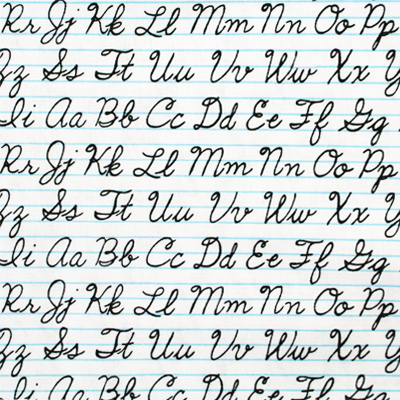 Rr Jj Kk Ll Mm Nn Oo Pp
Zz Ss Tt Uu Vv Ww Xx Y
Ii Aa Bb Cc Dd Ee Ff Gg
Rr Jj Kk Ll Mm Nn Oo Pp
Zz Ss Tt Uu Vv Ww Xx Y
Ii Aa Bb Cc Dd Ee Ff Gg
Rr Jj Kk Ll Mm Nn Oo Pp
Zz Ss Tt Uu Vv Ww Xx Y
Ii Aa Bb Cc Dd Ee Ff Gg